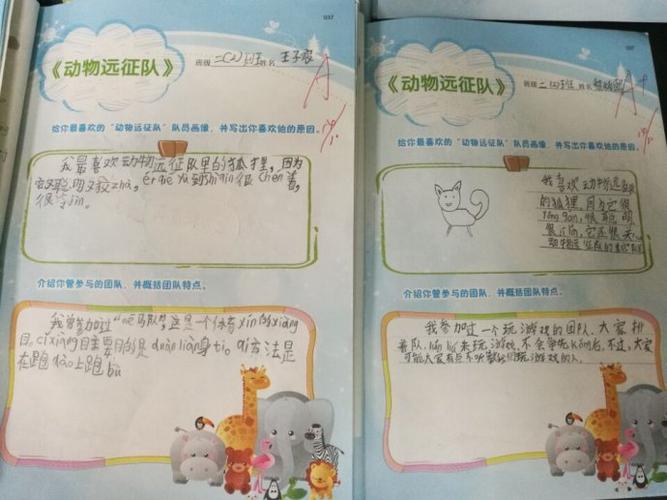 107
《动物远征队》
班级 二(2)班 姓名 王子
A
给你最喜欢的“动物远征队”队员画像，并写出你喜欢他的原因。
我最喜欢动物远征队里的狐狸，因为
它又聪明又狡zhà，ér qiě
很冷jìn。
介绍你曾参与的团队，并概括团队特点。
我曾参加过“跑马队”，这是一个体育xìn的xiàng
目。cǐ xiàng目主要目的是duàn liàn身tǐ。qí方法是
在跑dào上跑bù
107
《动物远征队》
班级 二(2)班 姓名
A+
给你最喜欢的“动物远征队”队员画像，并写出你喜欢他的原因。
我喜欢动物远征队
的狐狸，因为它很
yǒng gǎn，很聪明
它还很
动物远征队的
介绍你曾参与的团队，并概括团队特点。
我参加过一个玩游戏的团队，大家排
着队，来玩游戏，不会争先kǒng后，不过，大家
玩游戏的人。